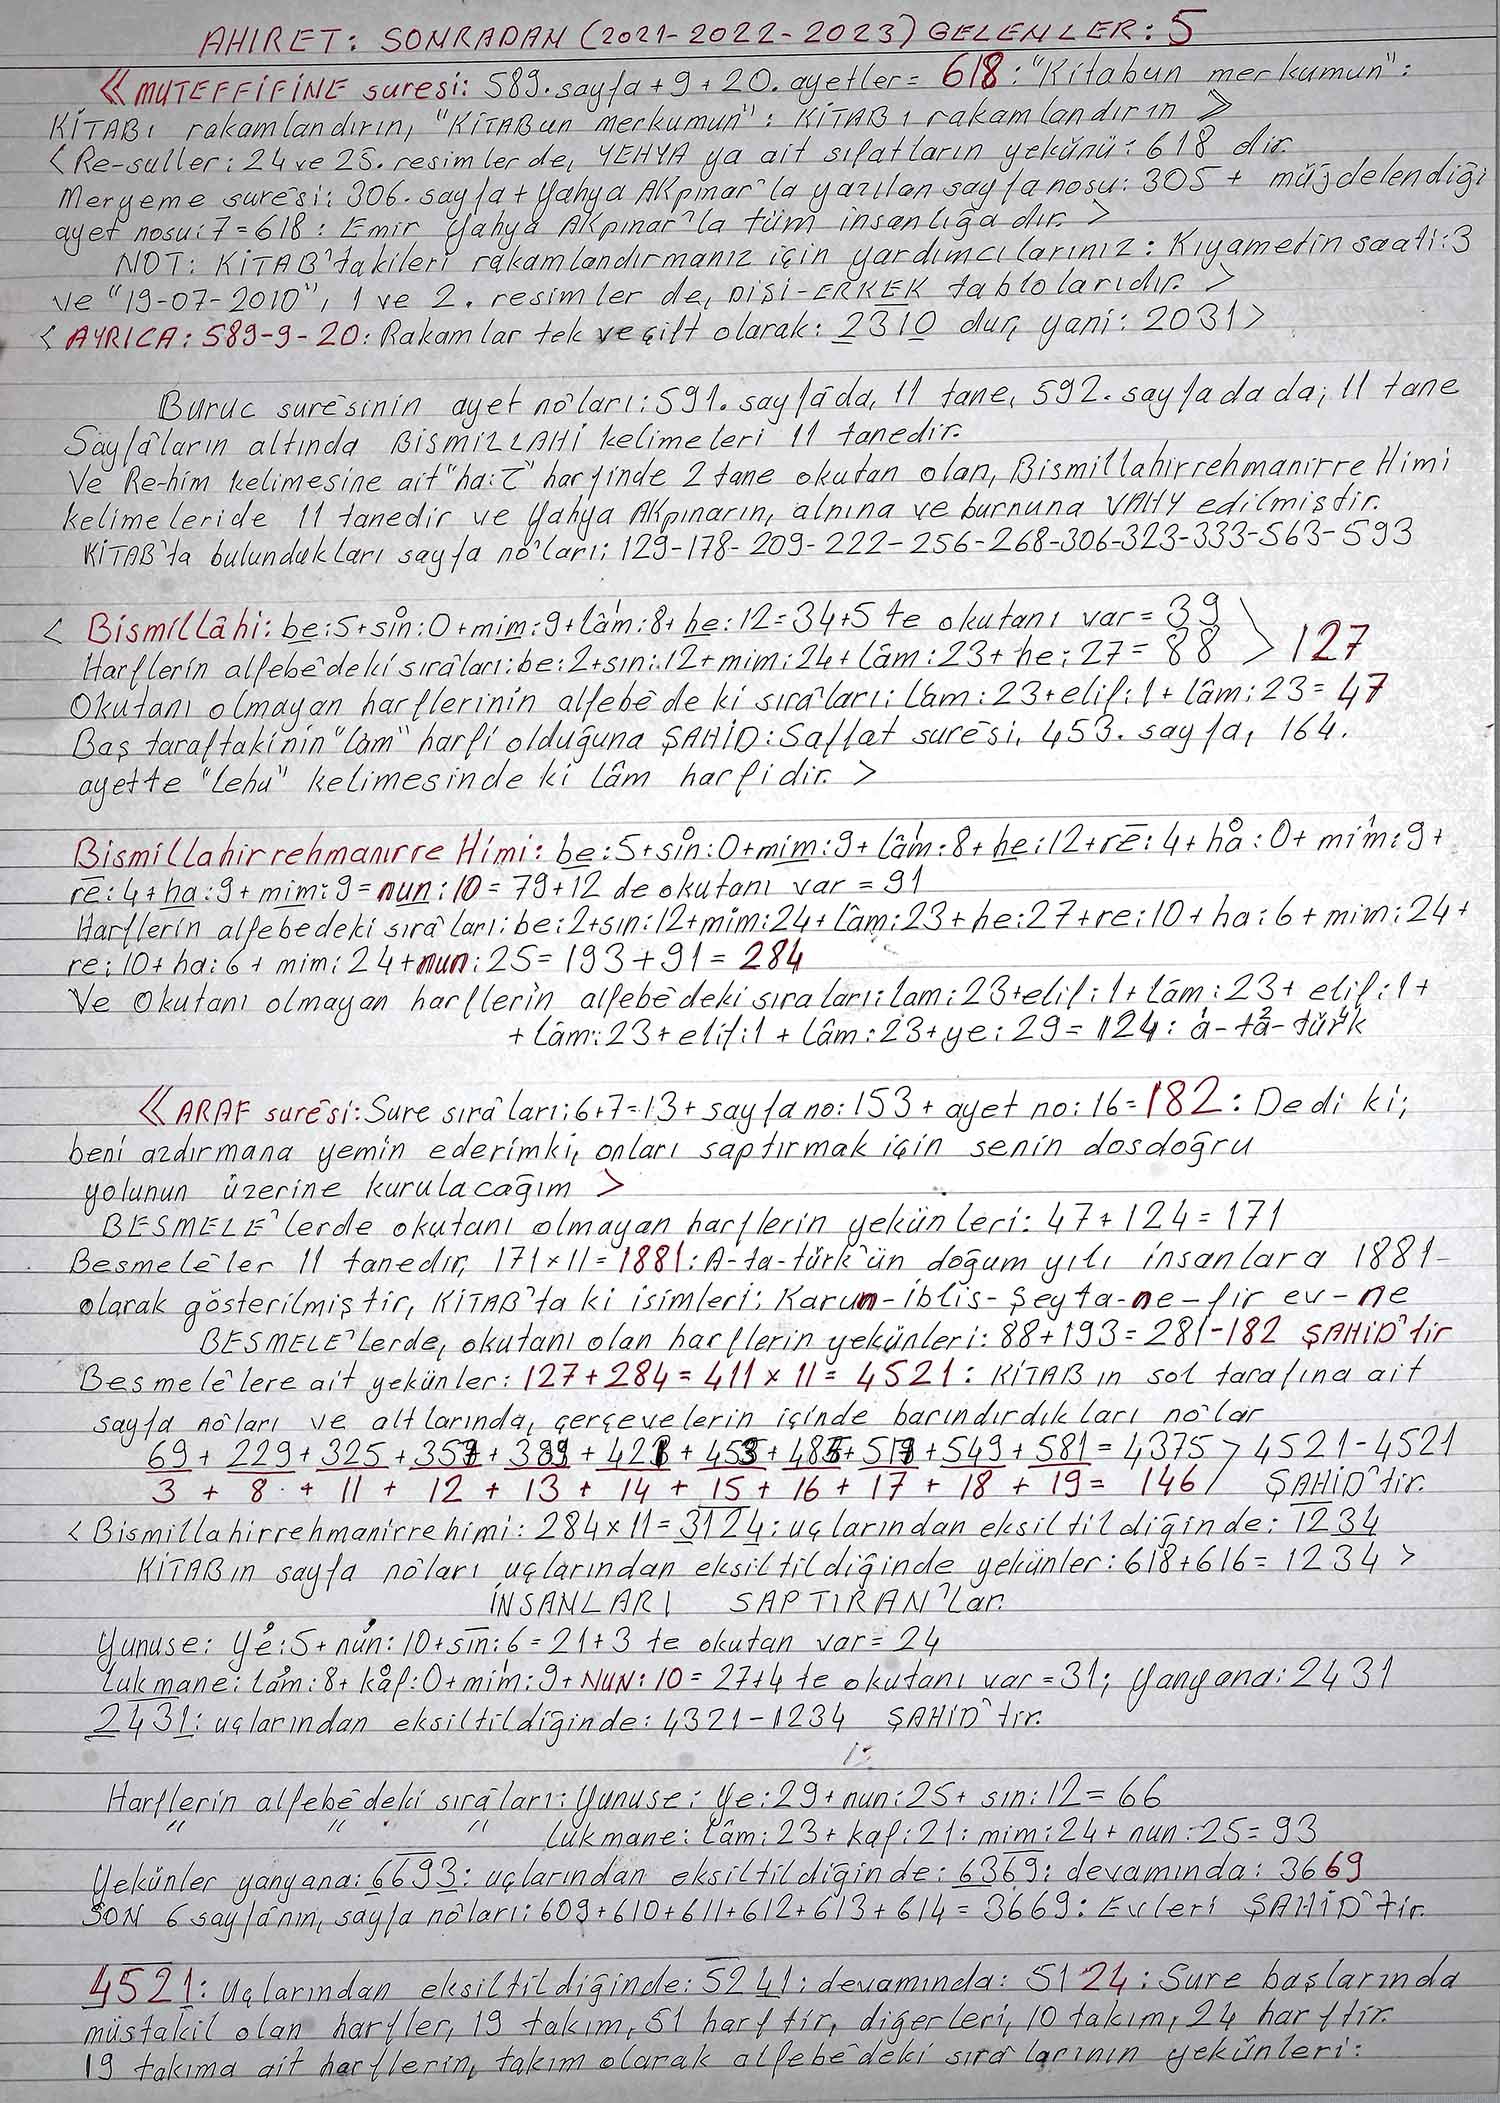 AHIRET: SONRADAN (2021-2022-2023) GELENLER: 5
《 MUTEFFİFİNE suresi: 589. sayfa + 9 + 20. ayetler = 618: "Kitabun merkumun":
KİTABı rakamlandırın, "KİTABun merkumun": KİTABı rakamlandırın 》
< Re-suller: 24 ve 25. resimlerde, YEHYA ya ait sıfatların yekûnü: 618 dir.
Meryeme suresi: 306. sayfa + Yahya AKpınar'la yazılan sayfa nosu: 305 + müjdelendiği
ayet nosu: 7 = 618: Emir Yahya AKpınar'la tüm insanlığa dır. >
NOT: KİTAB'takileri rakamlandırmanız için yardımcılarınız: Kıyametin saati: 3
ve "19-07-2010", 1 ve 2. resimler de, DİŞİ-ERKEK tablolarıdır. >
< AYRICA: 589-9-20: Rakamlar tek ve çift olarak: 2310 dur, yani: 2031 >
Buruc suresinin ayet no'ları: 591. sayfada, 11 tane, 592. sayfada da; 11 tane
Sayfaların altında BİSMİLLAHİ kelimeleri 11 tanedir.
Ve Re-him kelimesine ait "ha: ح" harfinde 2 tane okutan olan, Bismillahirrehmanirre Himi
kelimeleride 11 tanedir ve Yahya AKpınarın, alnına ve burnuna VAHY edilmiştir.
KİTAB'ta bulundukları sayfa no'ları; 129-178-209-222-256-268-306-323-333-563-593
< Bismillâhi: be:5+sin:0+mim:9+lâm:8+he:12=34+5 te okutanı var = 39
Harflerin alfebe'deki sıraları: be:2+sin:12+mim:24+lâm:23+he:27=88 > 127
Okutanı olmayan harflerinin alfebe'de ki sıraları; lâm:23+elif:1+lâm:23=47
Baş taraftakinin "lâm" harfi olduğuna ŞAHİD: Saffat suresi, 453. sayfa, 164.
ayette "lehu" kelimesinde ki lâm harfidir. >
Bismillahirrehmanırre Himi: be:5+sin:0+mim:9+lâm:8+he:12+re:4+ha:0+mim:9+
re:4+ha:9+mim:9=nun:10=79+12 de okutanı var = 91
Harflerin alfebedeki sıraları: be:2+sın:12+mim:24+lâm:23+he:27+re:10+ha:6+mim:24+
re:10+ha:6+mim:24+nun:25=193+91=284
Ve Okutanı olmayan harflerin alfebe'deki sıraları: lam:23+elif:1+lâm:23+elif:1+
+lâm:23+elif:1+lâm:23+ye:29=124: a-ta-türk
《 ARAF suresi: Sure sıraları; 6+7=13+sayfa no: 153+ayet no: 16=182: Dedi ki;
beni azdırmana yemin ederimki, onları saptırmak için senin dosdoğru
yolunun üzerine kurulacağım >
BESMELE'lerde okutanı olmayan harflerin yekünleri: 47+124=171
Besmele'ler 11 tanedir, 171x11=1881: A-ta-türk'ün doğum yılı insanlara 1881-
olarak gösterilmiştir, KİTAB'ta ki isimleri; Karun-iblis-Şeyta-ne-fir ev-ne
BESMELE'lerde, okutanı olan harflerin yekünleri: 88+193=281-182 ŞAHİD'tir
Besmele'lere ait yekünler: 127+284=411x11=4521: KİTABın sol tarafına ait
sayfa no'ları ve altlarında, çerçevelerin içinde barındırdıkları no'lar
69+229+325+357+389+421+453+485+517+549+581=4375 > 4521-4521
3 + 8 + 11 + 12 + 13 + 14 + 15 + 16 + 17 + 18 + 19 = 146 ŞAHİD'tir.
< Bismillahirrehmanirrehimi: 284x11=3124: uçlarından eksiltildiğinde: 1234
KİTABın sayfa no'ları uçlarından eksiltildiğinde yekünler: 618+616=1234 >
İNSANLARI SAPTIRAN'lar.
Yunuse: Ye:5+nun:10+sin:6=21+3 te okutan var=24
Lukmane: lâm:8+kaf:0+mim:9+NUN:10=27+4 te okutanı var=31; Yanyana: 2431
2431: uçlarından eksiltildiğinde: 4321-1234 ŞAHİD'tir.
Harflerin alfebe'deki sıraları: Yunuse: Ye:29+nun:25+sin:12=66
" " " Lukmane: lâm:23+kaf:21: mim:24+nun:25=93
Yekünler yanyana: 6693: uçlarından eksiltildiğinde: 6369: devamında: 3669
SON 6 sayfanın, sayfa no'ları: 609+610+611+612+613+614=3669: Evleri ŞAHİD'tir.
4521: Uçlarından eksiltildiğinde: 5241: devamında: 5124: Sure başlarında
müstakil olan harfler, 19 takım, 51 harftir, diğerleri, 10 takım, 24 harftir.
19 takıma ait harflerin, takım olarak alfebe'deki sıralarının yekünleri: